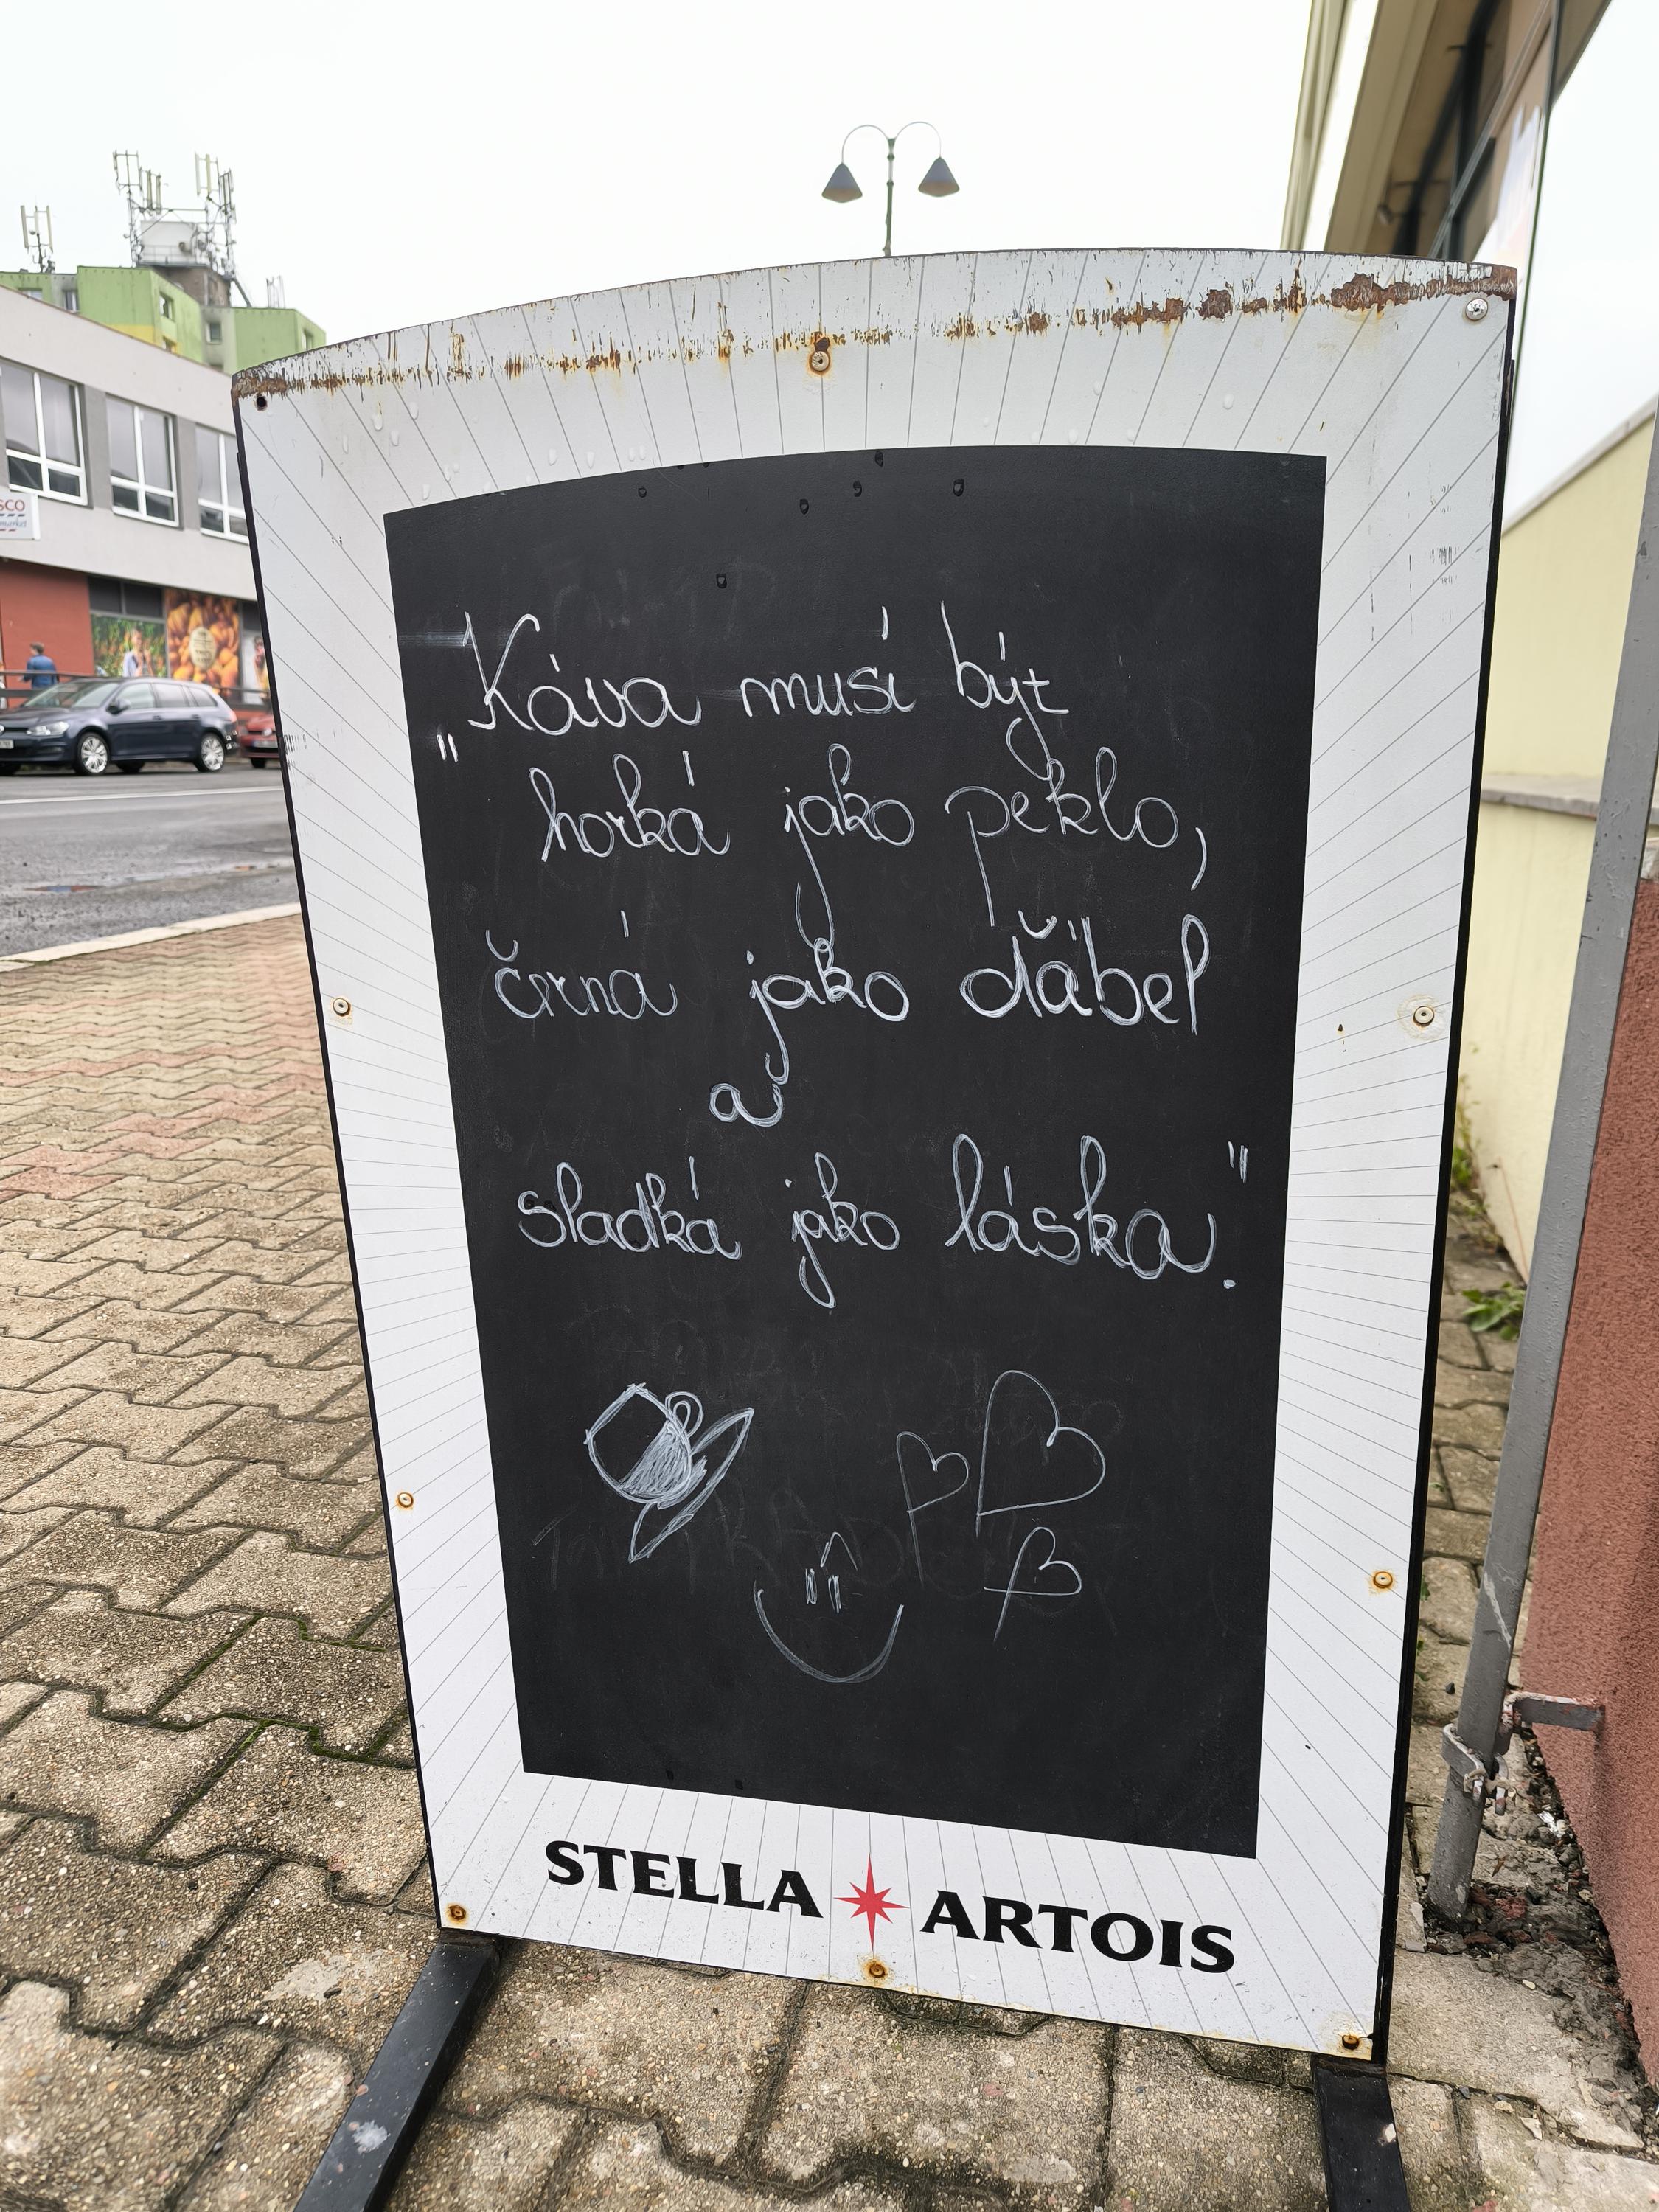 SCO
market
"Káva musí být
horká jako peklo,
černá jako ďábel
a
sladká jako láska."
STELLA ARTOIS